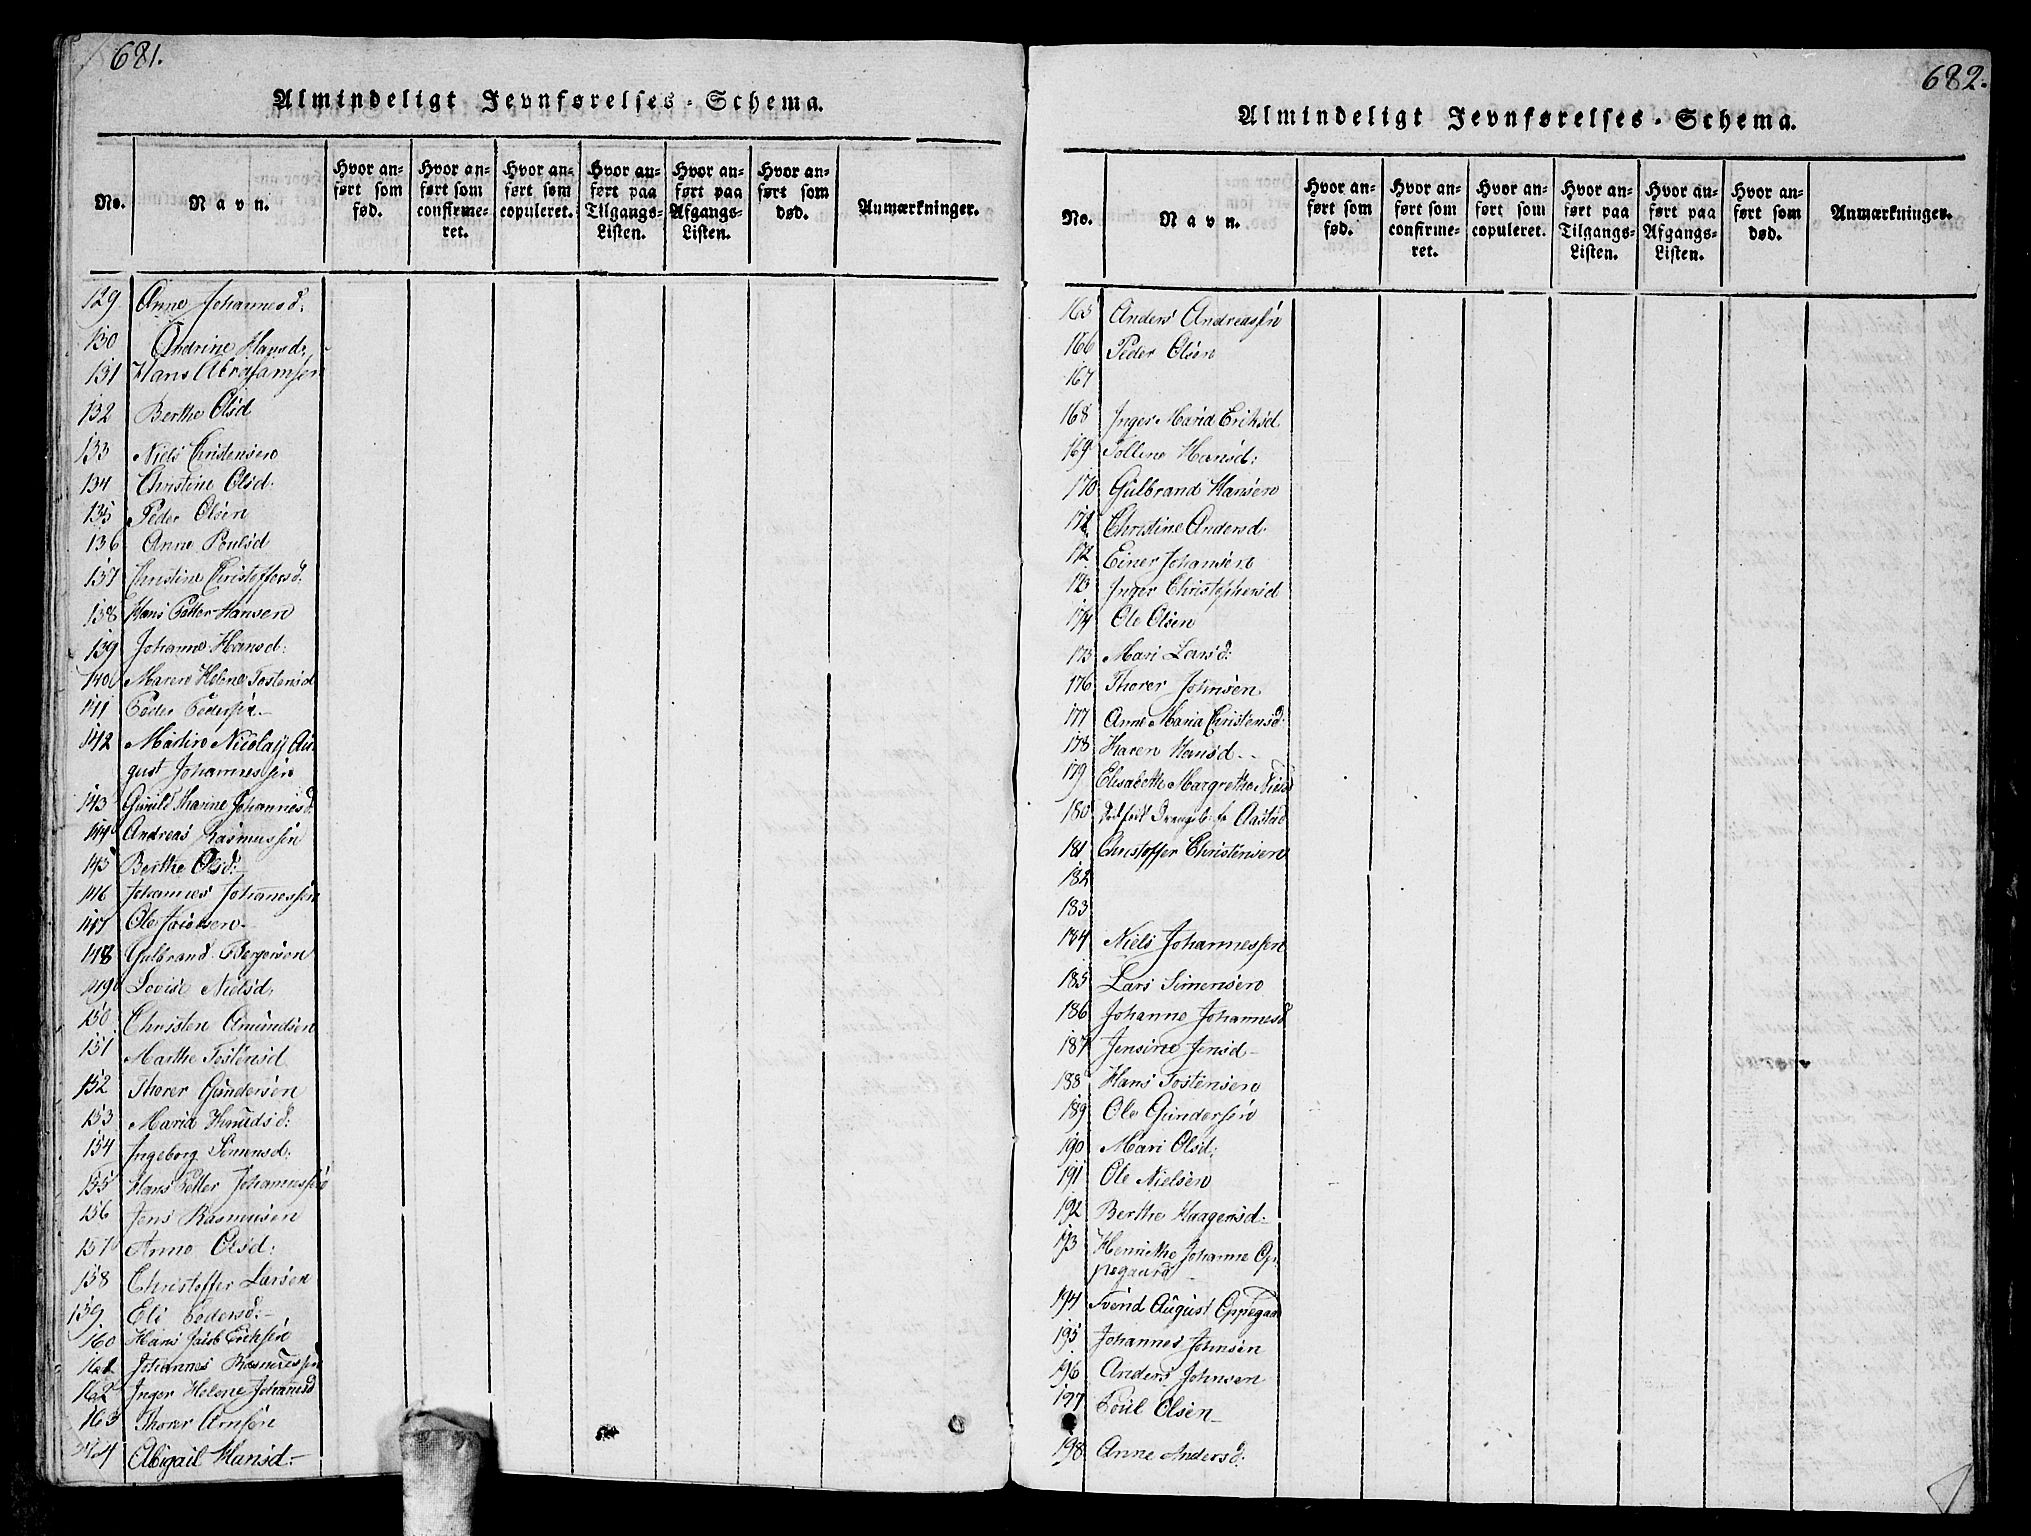 681.
Almindeligt Jevnførelses-Schema.
No. Navn. Hvor anført som fød. Hvor anført som confirmeret. Hvor anført som copuleret. Hvor anført paa Tilgangs-Listen. Hvor anført paa Afgangs-Listen. Hvor anført som død. Anmærkninger.
129 Anne Johannesd:
130 Andrine Hansd:
131 Hans Abrahamsen
132 Berthe Olsd
133 Niels Christensen
134 Christine Olsd.
135 Peder Olsen
136 Anne Poulsd
137 Christine Christoffersd.
138 Hans Petter Hansen
139 Johanne Hansd:
140 Maren Helene Tostensd
141 Peder Pedersen-
142 Martin Nicolaij Au
gust Johannessen
143 Thorine Johannesd.
144 Andreas Rasmussen
145 Berthe Olsd:
146 Johannes Johannessen
147 Ole
148 Gulbrand Bergersen
149 Lovise Nielsd.
150 Christen Amundsen
151 Marthe Tostensd
152 Thorer Gundersen
153 Maria Knudsd:
154 Ingeborg Simensd:
155 Hans Petter Johannessen
156 Jens Rasmusen
157 Anne Olsd:
158 Christoffer Larsen
159 Eli Pedersd:-
160 Hans Jacob Eriksen
161 Johannes Rasmussen
162 Inger Helene Johannesd
163 Thorer Arnsen
164 Abigail Hansd:-
682.
Almindeligt Jevnførelses-Schema.
No. Navn. Hvor anført som fød. Hvor anført som confirmeret. Hvor anført som copuleret. Hvor anført paa Tilgangs-Listen. Hvor anført paa Afgangs-Listen. Hvor anført som død. Anmærkninger.
165 Anders Andreassen
166 Peder Olsen
167
168 Inger Maria Eriksd
169 Polline Hansd:
170 Gulbrand Hansen
171 Christine Andersd.
172 Einer Johansen
173 Inger Christophersd
174 Ole Olsen
175 Mari Larsd:
176 Thorer Johnsen
177 Anne Maria Christensd:
178 Karen Hansd-
179 Elisabeth Margrethe Nielsd
180 Aastad
181 Christoffer Christensen
182
183
184 Niels Johannessen
185 Lars Simensen
186 Johanne Johannesd
187 Jensine Jensd-
188 Hans Tostensen
189 Ole Gundersen
190 Mari Olsd:
191 Ole Nielsen
192 Berthe Haagensd:
193 Henriethe Johanne Op
pegaard
194 Svend August Oppegaa
195 Johannes Johnsen
196 Anders Johnsen
197 Poul Olsen-
198 Anne Andersd: